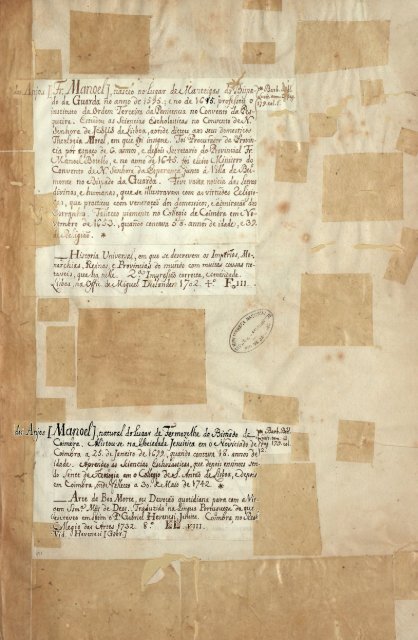 dos Anjos [Fr. Manoel], nasceo no lugar de Manteigas do Bispa-
do da Guarda no anno de 1595; e no de 1615, professou o
instituto da Ordem Terceira da Penitencia no Convento da Er-
queira. Estudou as Sciencias Escholasticas no Convento de N.
Senhora de JESUS de Lisboa, aonde dictou aos seus domesticos
Theologia Moral, em que foi insigne. Foi Procurador da Provin-
cia por espaço de annos, e depois Secretario do Provincial Fr.
Manoel Botelho, e no anno de 1645. foi eleito Ministro do
Convento de N. Senhora da Esperança junto á Villa de Bel-
monte no Bispado da Guarda. Teve vasta noticia das letras
divinas, e humanas, que as illustravam com as virtudes Religio-
sas, que praticou com veneração dos domesticos, e admiração dos
estranhos. Falleceo piamente no Collegio de Coimbra em No-
vembro de 1653, quando contava 58 annos de idade, e 39.
de Religião.
Barb. Bibl.
Historia Universal, em que se descrevem os Imperios, Mo-
narchias, Reynos, e Provincias do mundo com muitas cousas no-
taveis, que ha nelle. 2.ª Impressão correcta, e emendada.
Lisboa, na Offic. de Miguel Deslandes 1702. 4.º F. III.
dos Anjos [Manoel], natural do Lugar de Fermozelhe do Bispado de
Coimbra. Alistou-se na Sociedade Jesuitica em o Noviciado de
Coimbra a 25. de Janeiro de 1699, quando contava 16. annos de
idade. Aprendeo as Sciencias Ecclesiasticas, que depois ensinou sen-
do Lente de Theologia em o Collegio de S. Antão de Lisboa, e depois
em Coimbra, onde falleceo a 30. de Maio de 1742.
Barb. Bibl.
Arte da Boa Morte, ou Devoção quotidiana para com a Vir-
gem Sm.ª Mãi de Deos. Traduzida na Lingua Portugueza da que
escreveo em latim o P. Gabriel Hevenesi, Jesuita. Coimbra no Real
Collegio das Artes 1732. 8.º
Vid. Hevenesi [Gabr.]